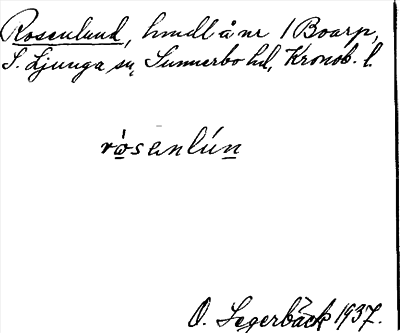 Rosenlund, hmdl å nr 1 Boarp,
S. Ljunga sn, Sunnerbo hd, Kronob. l.
ròsenlún
O. Segerbäck 1937.